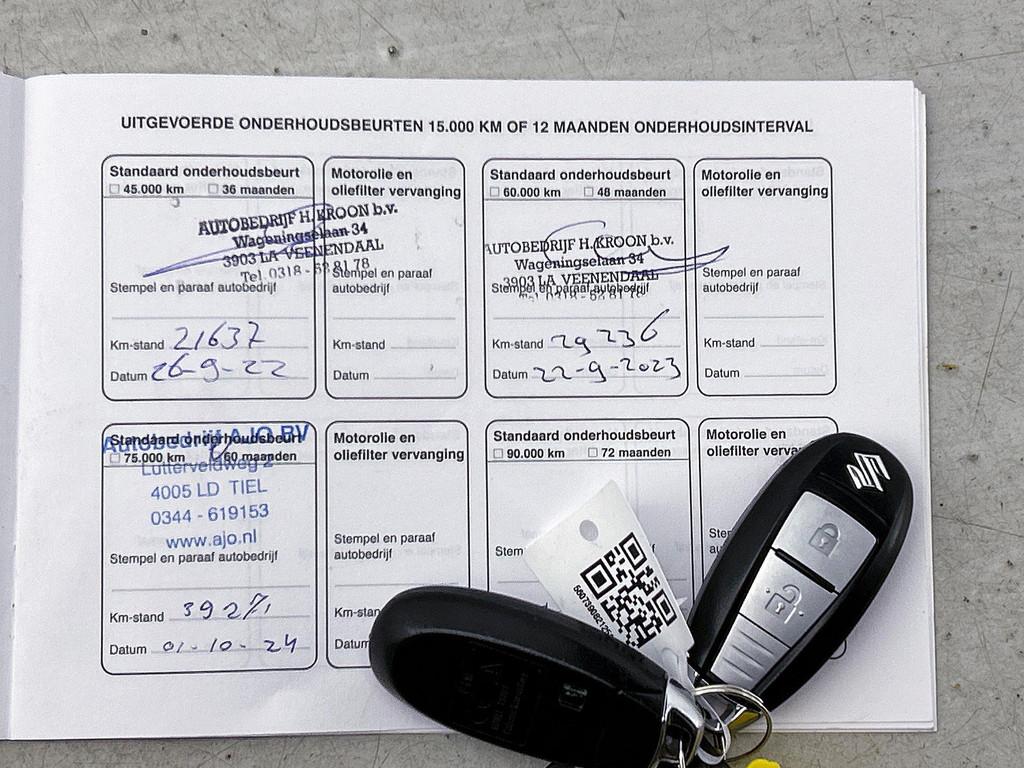 UITGEVOERDE ONDERHOUDSBEURTEN 15.000 KM OF 12 MAANDEN ONDERHOUDSINTERVAL
Standaard onderhoudsbeurt
45.000 km 36 maanden
AUTOBEDRIJF H. KROON b.v.
Wageningselaan 34
3903 LA VEENENDAAL
Tel. 0318 - 52 81 78
Stempel en paraaf autobedrijf
Km-stand 21637
Datum 26-9-22
Motorolie en
oliefilter vervanging
Stempel en paraaf
autobedrijf
Km-stand
Datum
Standaard onderhoudsbeurt
60.000 km 48 maanden
AUTOBEDRIJF H. KROON b.v.
Wageningselaan 34
3903 LA VEENENDAAL
Tel. 0318 - 52 81 78
Stempel en paraaf autobedrijf
Km-stand 29236
Datum 22-9-2023
Motorolie en
oliefilter vervanging
Stempel en paraaf
autobedrijf
Km-stand
Datum
Standaard onderhoudsbeurt
75.000 km 60 maanden
Autobedrijf AJO BV
Lutterveldweg 2
4005 LD TIEL
0344 - 619153
www.ajo.nl
Stempel en paraaf autobedrijf
Km-stand
Datum 01-10-24
Motorolie en
oliefilter vervanging
Stempel en paraaf
autobedrijf
Km-stan
Datum
Standaard onderhoudsbeurt
90.000 km 72 maanden
Stem
Motorolie en
oliefilter verva
Stem
au